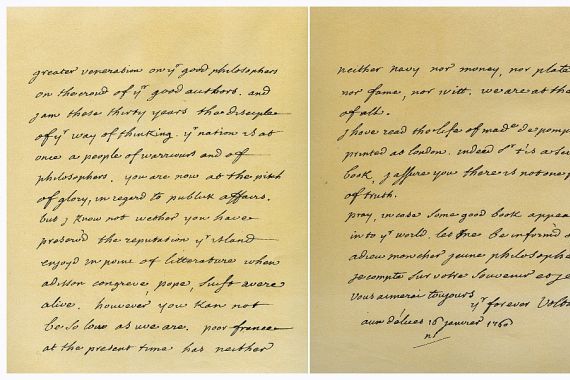 greater veneration on yr good philosophers
on the crowd of yr good authors. and
j am these thirty years the disciple
of yr way of thinking. yr nation is at
once a people of warriours and of
philosophers. you are now at the pitch
of glory, in regard to publick affairs.
but j know not wether you have
preserv'd the reputation yr island
enjoy'd in point of litterature when
adisson congreve pope, swift were
alive. however you kan not
be so low as we are. poor france
at the present time has neither
neither navy nor money, nor plate
nor fame, nor witt. we are at the
of all.
j have read the life of made de pomp
printed at london. indeed sr t'is a
book, j assure you there is not one p
of truth.
pray, in case some good book appea
in to yr world. let me be inform'd
adieu mon cher jeune philosophe
je compte sur votre souvenir et je
vous aimerai toujours
yr forever Volt
aux délices 16 janvier 1760